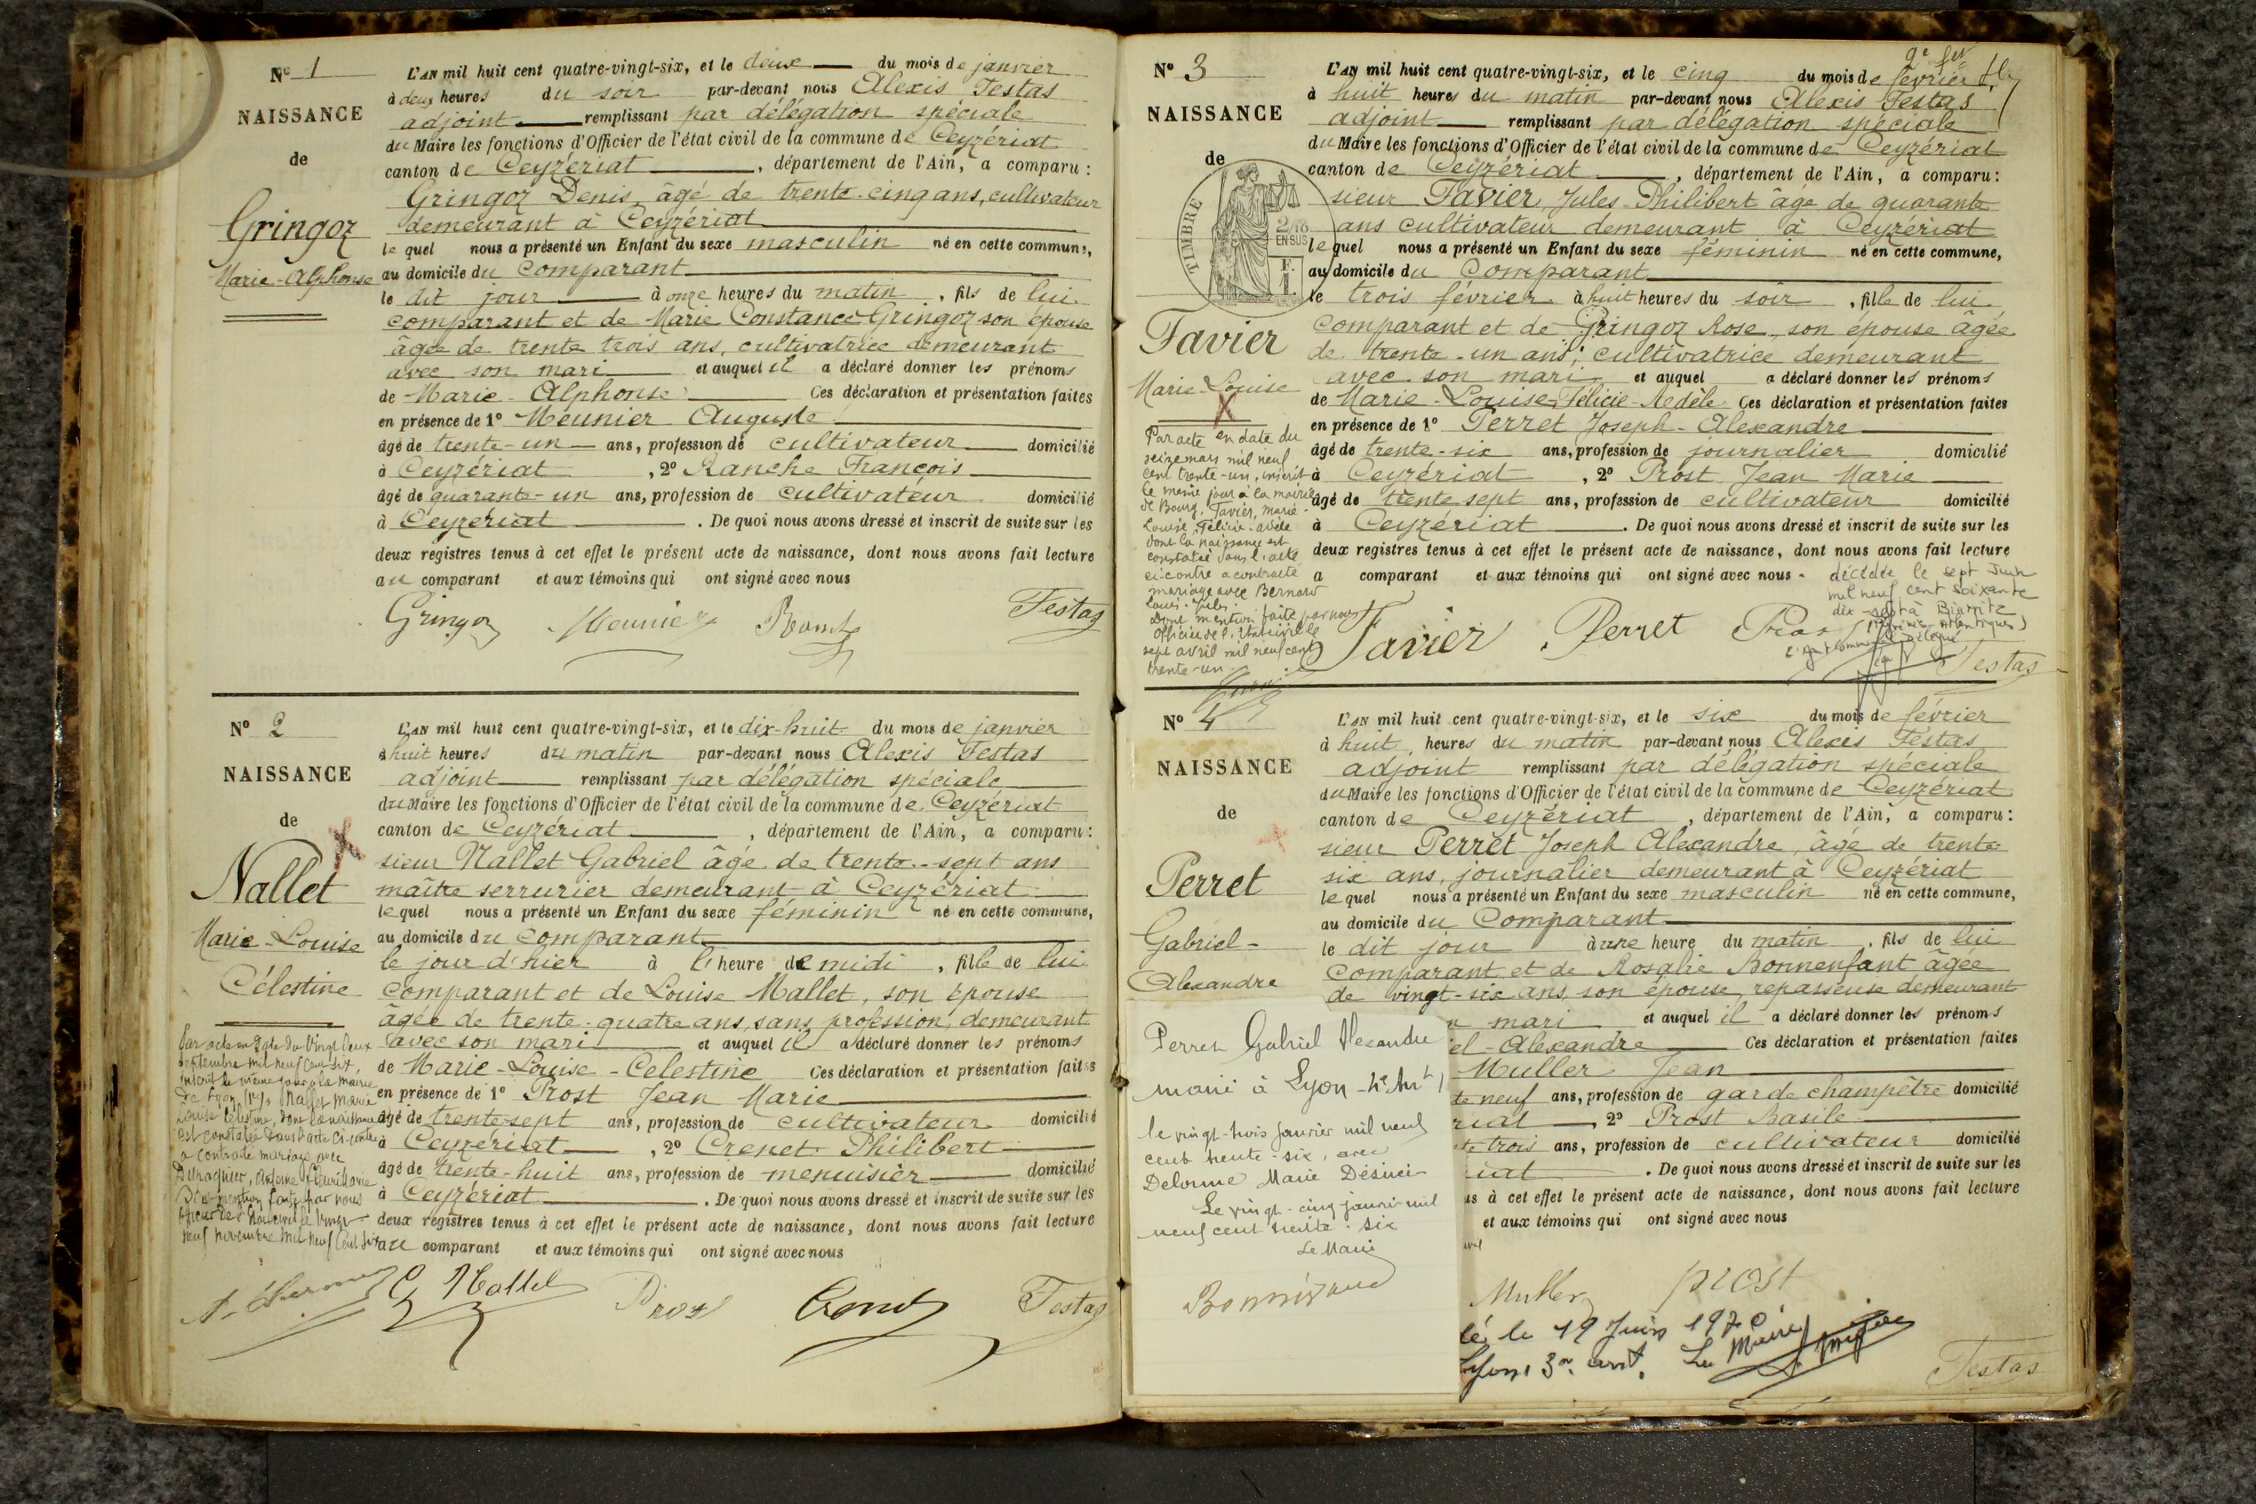 N° 1
NAISSANCE
de
Gringoz
Marie-Alphonse
L'AN mil huit cent quatre-vingt-six, et le deux du mois de janvier
à deux heures du soir par-devant nous Alexis Festas
adjoint remplissant par délégation spéciale
du Maire les fonctions d'Officier de l'état civil de la commune de Ceyzériat
canton de Ceyzériat, département de l'Ain, a comparu :
Gringoz Denis, âgé de trente-cinq ans, cultivateur
demeurant à Ceyzériat
le quel nous a présenté un Enfant du sexe masculin né en cette commune,
au domicile du comparant
le dit jour à onze heures du matin, fils de lui
comparant et de Marie Constance Gringoz son épouse
âgée de trente trois ans, cultivatrice demeurant
avec son mari et auquel il a déclaré donner les prénoms
de Marie-Alphonse Ces déclaration et présentation faites
en présence de 1° Meunier Auguste
âgé de trente-un ans, profession de cultivateur domicilié
à Ceyzériat, 2° Ranche François
âgé de quarante-un ans, profession de cultivateur domicilié
à Ceyzériat. De quoi nous avons dressé et inscrit de suite sur les
deux registres tenus à cet effet le présent acte de naissance, dont nous avons fait lecture
au comparant et aux témoins qui ont signé avec nous
Gringoz Meunier Festas
N° 2
NAISSANCE
de
Nallet
Marie-Louise
Célestine
Par acte en date du vingt deux
septembre mil neuf cent six,
inscrit le même jour à la mairie
de Lyon, Nallet Marie
Louise Célestine, dont la naissance
est constatée dans l'acte ci-contre
a contracté mariage avec
Antoine Fleuri Marie
Dont mention faite par nous
officier de l'état civil le vingt
neuf novembre mil neuf cent six
L'AN mil huit cent quatre-vingt-six, et le dix-huit du mois de janvier
à huit heures du matin par-devant nous Alexis Festas
adjoint remplissant par délégation spéciale
du Maire les fonctions d'Officier de l'état civil de la commune de Ceyzériat
canton de Ceyzériat, département de l'Ain, a comparu :
sieur Nallet Gabriel âgé de trente-sept ans
maître serrurier demeurant à Ceyzériat
le quel nous a présenté un Enfant du sexe féminin né en cette commune,
au domicile du comparant
le jour d'hier à l'heure de midi, fille de lui
comparant et de Louise Mallet, son épouse
âgée de trente-quatre ans, sans profession, demeurant
avec son mari et auquel il a déclaré donner les prénoms
de Marie-Louise-Celestine Ces déclaration et présentation faites
en présence de 1° Prost Jean Marie
âgé de trente-sept ans, profession de cultivateur domicilié
à Ceyzériat, 2° Crenet Philibert
âgé de trente-huit ans, profession de menuisier domicilié
à Ceyzériat. De quoi nous avons dressé et inscrit de suite sur les
deux registres tenus à cet effet le présent acte de naissance, dont nous avons fait lecture
au comparant et aux témoins qui ont signé avec nous
G Nallet Prost Crenet Festas
N° 3
NAISSANCE
de
TIMBRE
2/10
EN SUS
Favier
Marie-Louise
X
Par acte en date du
seize mars mil neuf
cent trente-un, inscrit
le même jour à la mairie
de Bourg, Favier, Marie-
Louise, Félicie-Adèle
dont la naissance est
constatée dans l'acte
ci-contre a contracté
mariage avec Bernard
Louis-Jules.
Dont mention faite par nous
Officier de l'état civil le
sept avril mil neuf cent
trente-un
L'AN mil huit cent quatre-vingt-six, et le cinq du mois de février
à huit heures du matin par-devant nous Alexis Festas
adjoint remplissant par délégation spéciale
du Maire les fonctions d'Officier de l'état civil de la commune de Ceyzériat
canton de Ceyzériat, département de l'Ain, a comparu :
sieur Favier, Jules-Philibert âgé de quarante
ans cultivateur demeurant à Ceyzériat
le quel nous a présenté un Enfant du sexe féminin né en cette commune,
au domicile du comparant
le trois février à huit heures du soir, fille de lui
comparant et de Gringoz Rose, son épouse âgée
de trente-un ans, cultivatrice demeurant
avec son mari et auquel a déclaré donner les prénoms
de Marie-Louise-Félicie-Aedèle Ces déclaration et présentation faites
en présence de 1° Perret Joseph-Alexandre
âgé de trente-six ans, profession de journalier domicilié
à Ceyzériat, 2° Prost Jean Marie
âgé de trente sept ans, profession de cultivateur domicilié
à Ceyzériat. De quoi nous avons dressé et inscrit de suite sur les
deux registres tenus à cet effet le présent acte de naissance, dont nous avons fait lecture
a comparant et aux témoins qui ont signé avec nous.
décédée le sept Juin
mil neuf cent soixante
dix-sept à Biarritz
(Pyrénées-Atlantiques)
Favier Perret Prost Festas
N° 4
NAISSANCE
de
Perret
Gabriel-
Alexandre
L'AN mil huit cent quatre-vingt-six, et le six du mois de février
à huit heures du matin par-devant nous Alexis Festas
adjoint remplissant par délégation spéciale
du Maire les fonctions d'Officier de l'état civil de la commune de Ceyzériat
canton de Ceyzériat, département de l'Ain, a comparu :
sieur Perret Joseph Alexandre, âgé de trente
six ans, journalier demeurant à Ceyzériat
le quel nous a présenté un Enfant du sexe masculin né en cette commune,
au domicile du comparant
le dit jour à une heure du matin, fils de lui
comparant et de Rosalie Bonnenfant âgée
de vingt-six ans, son épouse, repasseuse demeurant
n mari et auquel il a déclaré donner les prénoms
el-Alexandre Ces déclaration et présentation faites
Muller Jean
te neuf ans, profession de garde champêtre domicilié
riat, 2° Prost Basile
te trois ans, profession de cultivateur domicilié
riat. De quoi nous avons dressé et inscrit de suite sur les
us à cet effet le présent acte de naissance, dont nous avons fait lecture
et aux témoins qui ont signé avec nous
Muller prost
dé le 19 Juin 1970
Lyon 3e arrt. Le Maire
Festas
Perret Gabriel Alexandre
marié à Lyon - 4e Arrt
le vingt-trois janvier mil neuf
cent trente-six, avec
Delorme Marie Désirée
Le vingt-cinq janvier mil
neuf cent trente-six
Le Maire